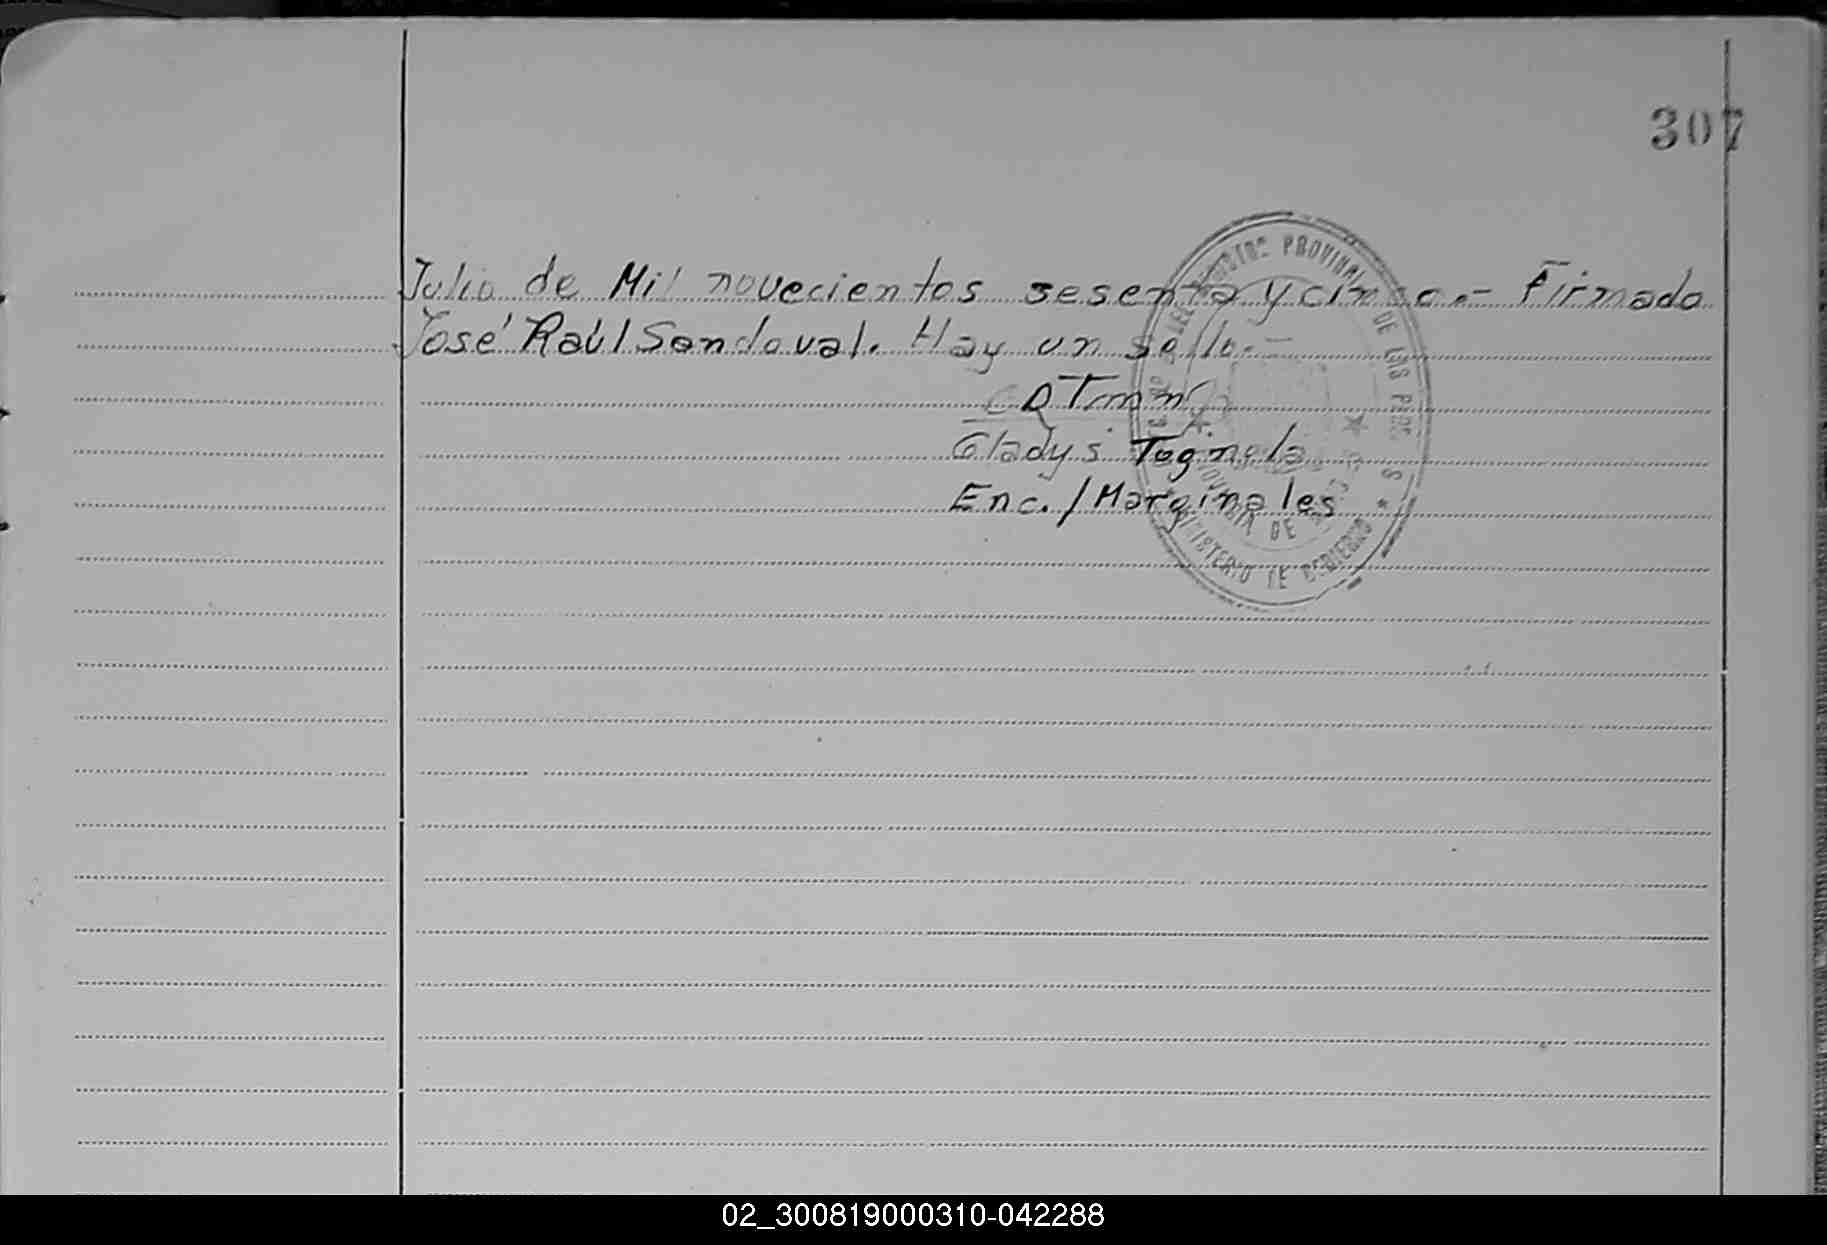 307
Julio de Mil novecientos sesenta y cinco.- Firmado
José Raúl Sandoval. Hay un sello.-
Gladys
Enc./Marginales
PROVINCIAL DE LAS PERS
MINISTERIO DE GOBIERNO
02_300819000310-042288